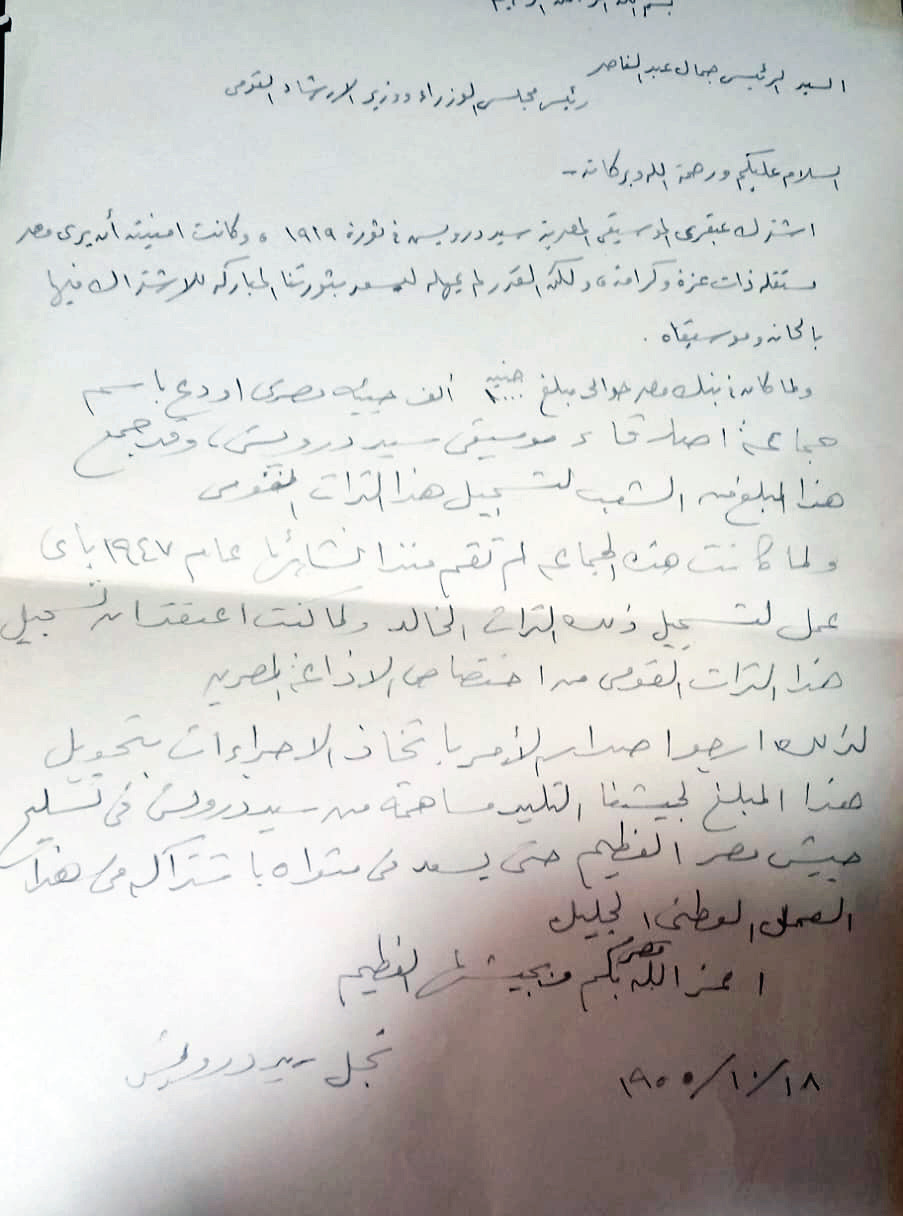 بسم الله الرحمن الرحيم
السيد الرئيس جمال عبد الناصر
رئيس مجلس الوزراء ووزير الارشاد القومى
السلام عليكم ورحمة الله وبركاته -
اشترك عبقرى الموسيقى المصرية سيد درويش فى ثورة ١٩١٩ ، وكانت امنيته أن يرى مصر
مستقله ذات عزة وكرامة ، ولكن القدر لم يمهله ليسعد بثورتنا المباركه للاشتراك فيها
بالحانه وموسيقاه .
ولما كان فى بنك مصر حوالى مبلغ ١٠٠٠ جنيه ألف جنيه مصرى اودع باسم
جماعة اصدقاء موسيقى سيد درويش ، وقد جمع
هذا المبلغ من الشعب لتسجيل هذا التراث القومى
ولما كانت هذه الجماعه لم تقم منذ انشائها عام ١٩٤٧ باى
عمل لتسجيل ذلك التراث الخالد ولما كنت اعتقد ان تسجيل
هذا التراث القومى من اختصاص الاذاعة المصريه
لذلك ارجوا اصدار الأمر باتخاذ الاجراءات بتحويل
هذا المبلغ لجيشنا التليد مساهمة من سيد درويش فى تسليح
جيش مصر العظيم حتى يسعد فى مثواه باشتراكه فى هذا
العمل الوطنى الجليل
اعز الله بكم مصر وبجيشها العظيم
نجل سيد درويش
١٨/١٠/١٩٥٥